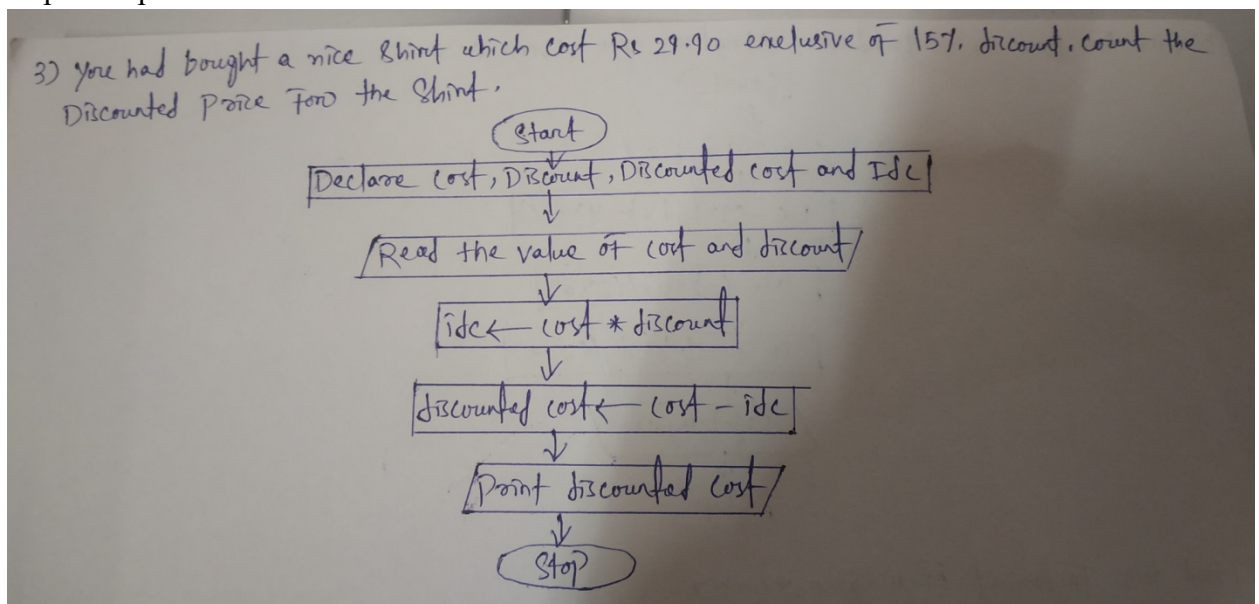 3) You had bought a nice Shirt which cost Rs 29.90 exclusive of 15%. discount. count the
Discounted Price For the Shirt.
Start
Declare cost, Discount, Discounted cost and Idc
Read the value of cost and discount
idc ← cost * discount
discounted cost ← cost - idc
Print discounted cost
Stop